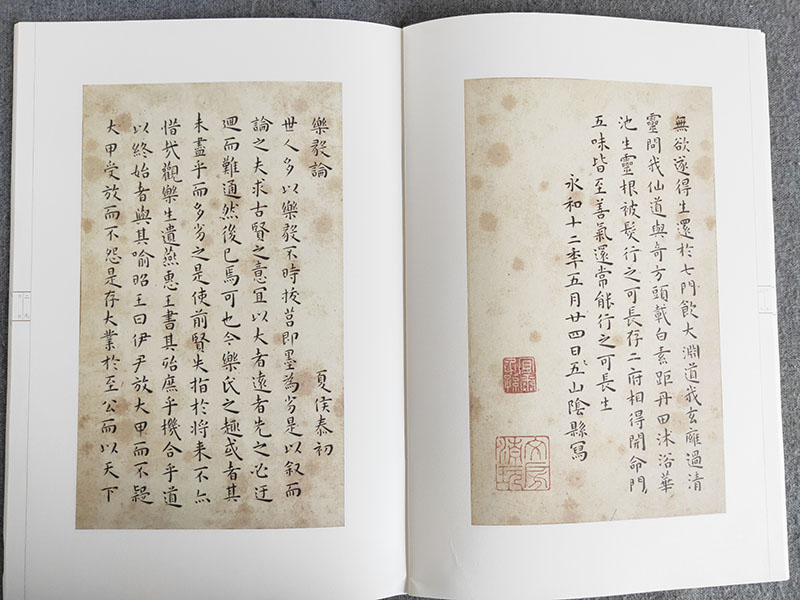 無欲遂得生還於七門飲大淵道我玄雍過清
靈問我仙道與奇方頭戴白素距丹田沐浴華
池生靈根被髮行之可長存二府相得開命門
五味皆至善氣還常能行之可長生
永和十二年五月廿四日五山陰縣寫
文房清玩
樂毅論 夏侯泰初
世人多以樂毅不時拔莒即墨為劣是以叙而
論之夫求古賢之意宜以大者遠者先之必迂
迴而難通然後已焉可也今樂氏之趣或者其
未盡乎而多劣之是使前賢失指於將来不亦
惜哉觀樂生遺燕惠王書其殆庶乎機合乎道
以終始者與其喻昭王曰伊尹放大甲而不疑
大甲受放而不怨是存大業於至公而以天下